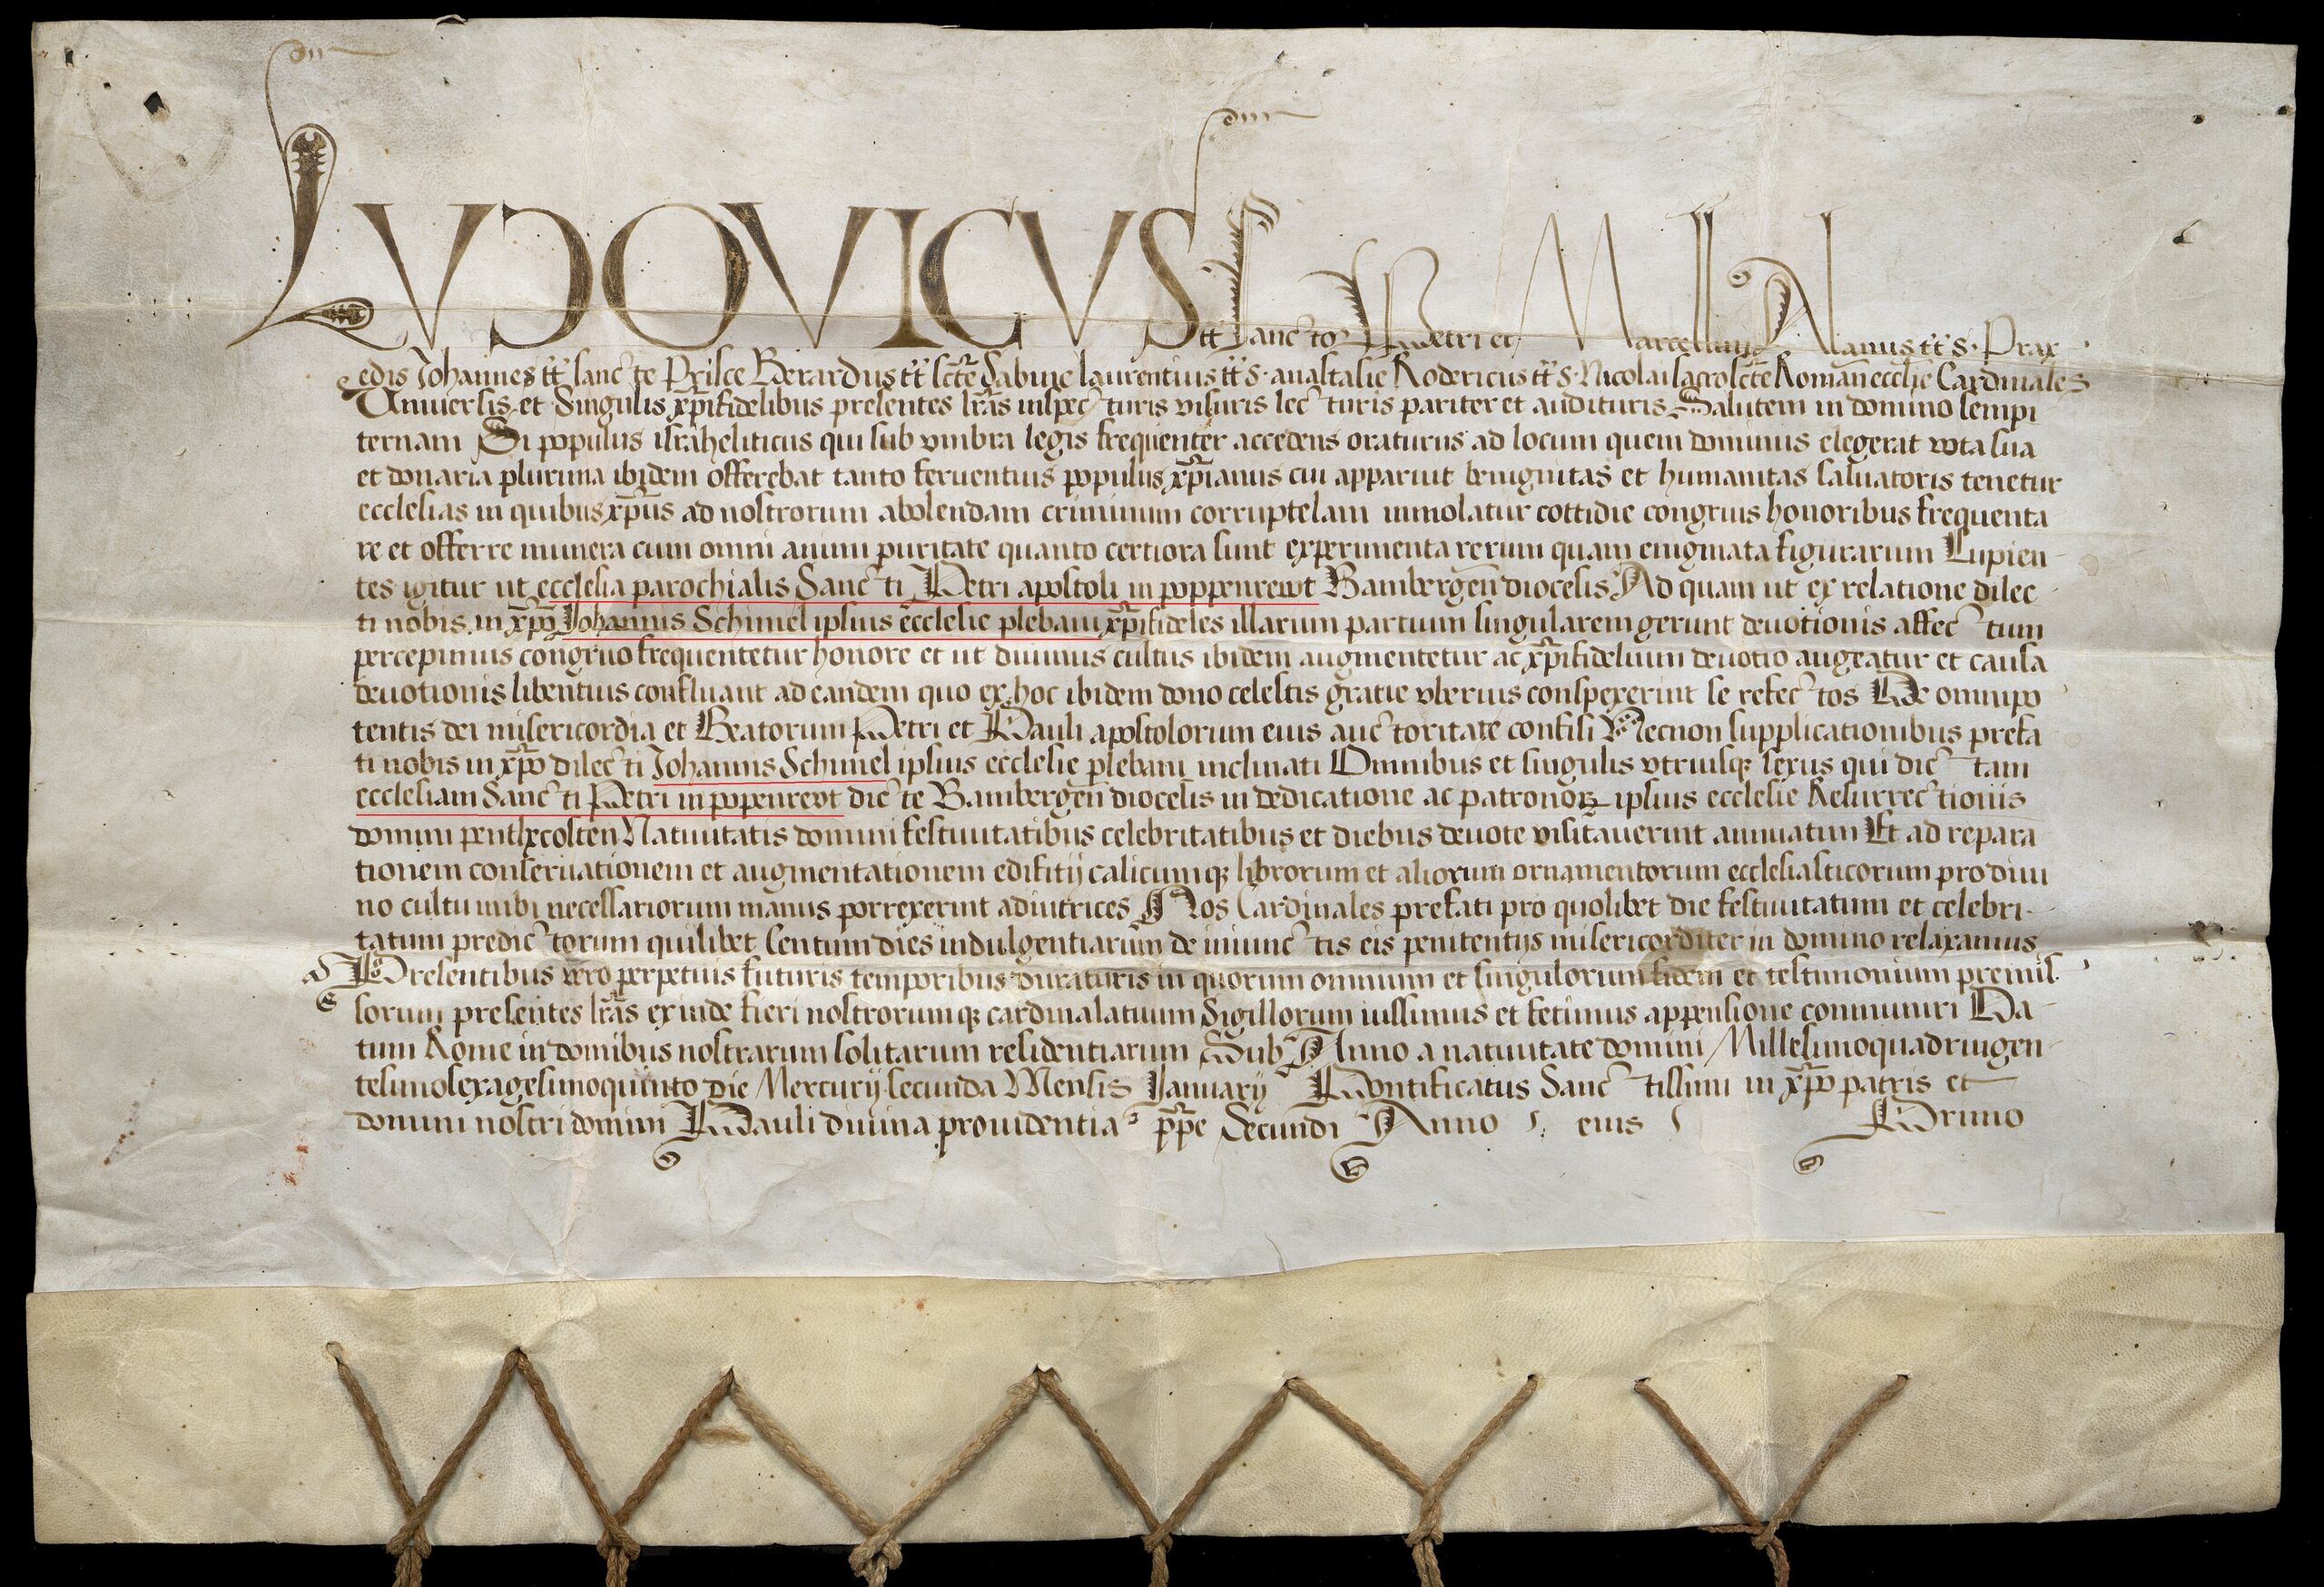 dm
dm
LUDOVICUS tt̃ Sanctoꝝ Petri et Marcellini Alanus tt̃ s. Prax
edis Johannes tt̃ sancte Prisce Berardus tt̃ scẽ Sabine laurentius tt̃ s. anastasie Rodericus tt̃ s. Nicolai sacroscẽ Romañ ecclie Cardinales
Uniuersis et Singulis xp̃ifidelibus presentes lr̃as inspecturis visuris lecturis pariter et audituris Salutem in domino sempi
ternam Si populus israheliticus qui sub vmbra legis frequenter accedens oraturus ad locum quem dominus elegerat vota sua
et donaria plurima ibidem offerebat tanto feruentius populus xp̃ianus cui apparuit benignitas et humanitas saluatoris tenetur
ecclesias in quibus xp̃us ad nostrorum abolendam criminum corruptelam inmolatur cottidie congruis honoribus frequenta
re et offerre munera cum omni animi puritate quanto certiora sunt experimenta rerum quam enigmata figurarum Cupien-
tes igitur ut ecclesia parochialis Sancti Petri apostoli in poppenrewt Bambergeñ diocesis Ad quam ut ex relatione dilec-
ti nobis in xp̃o Johannis Schimel ipsius ecclesie plebani xp̃ifideles illarum partium singularem gerunt deuotionis affectum
percepimus congruo frequentetur honore et ut diuinus cultus ibidem augmentetur ac xp̃ifidelium deuotio augeatur et causa
deuotionis libentius confluant ad eandem quo ex hoc ibidem dono celestis gratie vberius conspexerint se refectos De omnipo
tentis dei misericordia et Beatorum Petri et Pauli apostolorum eius auctoritate confisi Necnon supplicationibus prefa
ti nobis in xp̃o dilecti Johannis Schimel ipsius ecclesie plebani inclinati Omnibus et singulis vtriusqꝫ sexus qui dictam
ecclesiam Sancti Petri in popenrewt dicte Bambergeñ diocesis in dedicatione ac patronoꝝ ipsius ecclesie Resurrectionis
domini penthecosten Natiuitatis domini festiuitatibus celebritatibus et diebus deuote visitauerint annuatim Et ad repara
tionem conseruationem et augmentationem edifitij calicumqꝫ librorum et aliorum ornamentorum ecclesiasticorum pro diui
no cultu inibi necessariorum manus porrexerint adiutrices Nos Cardinales prefati pro quolibet die festiuitatum et celebri-
tatum predictorum quilibet Centum dies indulgentiarum de iniunctis eis penitentijs misericorditer in domino relaxamus
Presentibus vero perpetuis futuris temporibus duraturis in quorum omnium et singulorum fidem et testimonium premis-
sorum presentes lr̃as exinde fieri nostrorumqꝫ cardinalatuum Sigillorum iussimus et fecimus appensione communiri Da-
tum Rome in domibus nostrarum solitarum residentiarum Sub Anno a natiuitate domini Millesimoquadringen-
tesimosexagesimoquinto die Mercurij secunda Mensis Januarij Pontificatus Sanctissimi in xp̃o patris et
domini nostri domini Pauli diuina prouidentia pp̃e Secundi Anno eius Primo